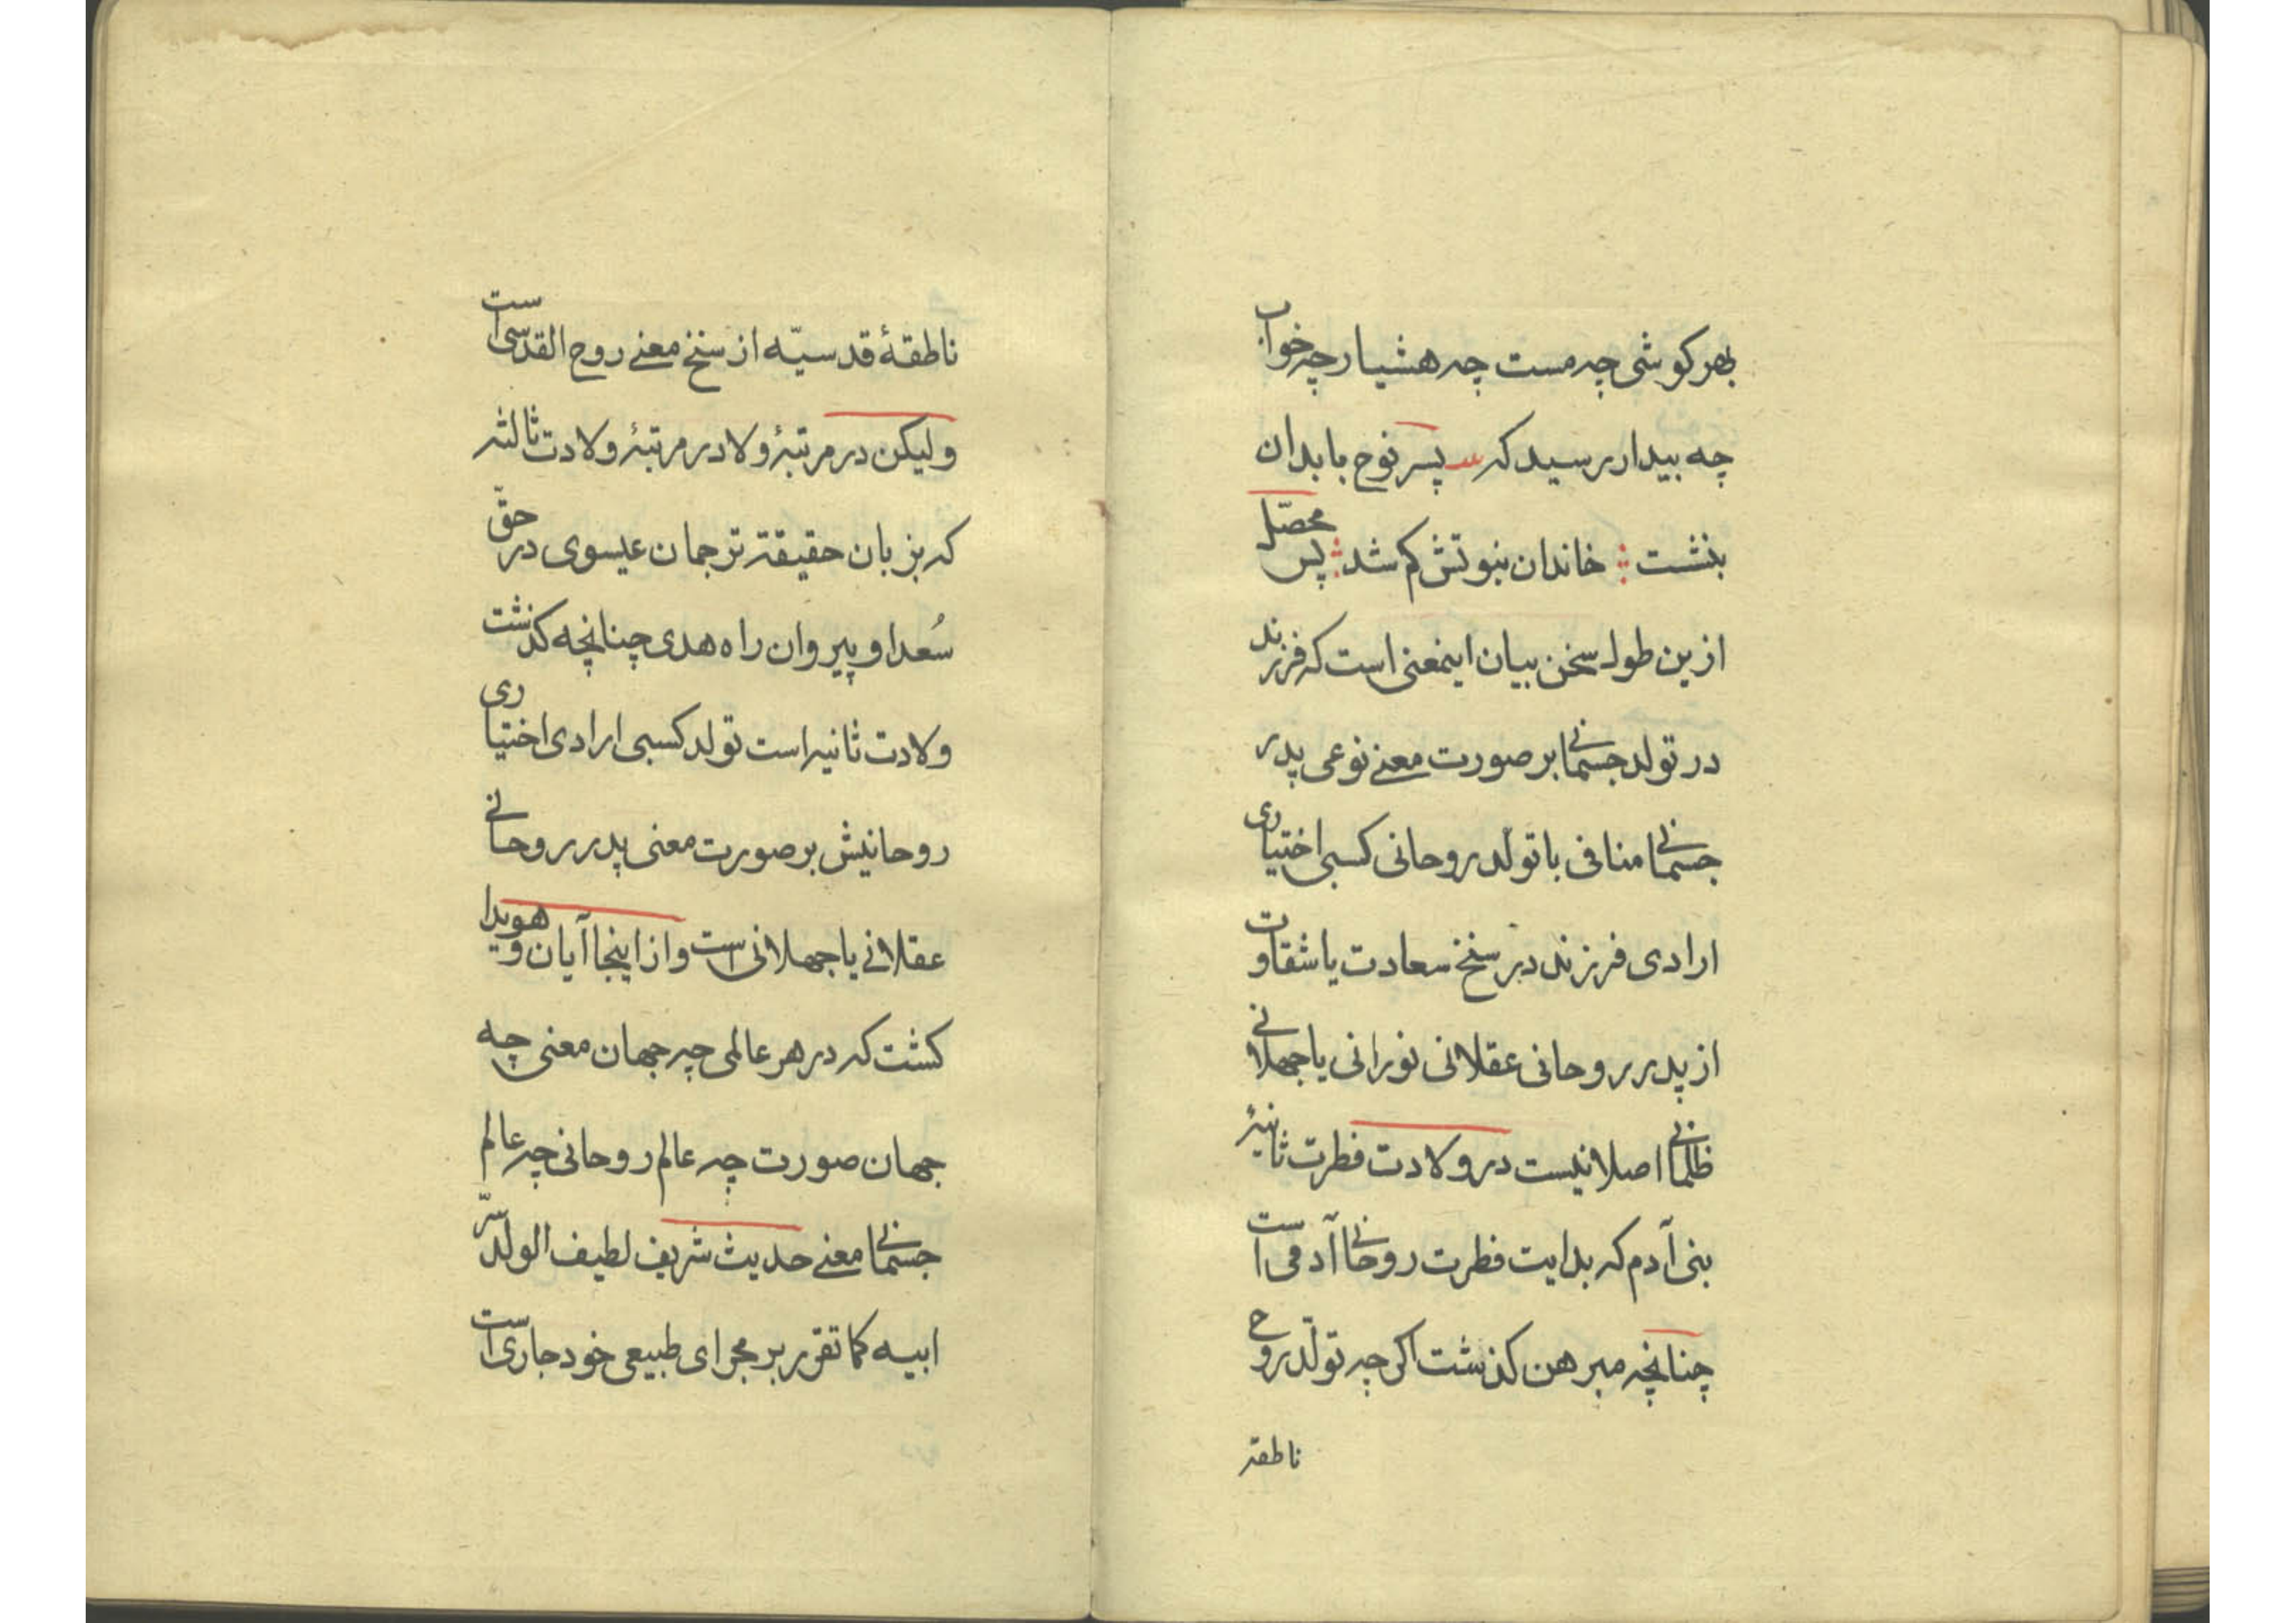 بهر کوشی چه مست چه هشیار چه خواب
چه بیدار رسید که پسر نوح با بدان
بنشست خاندان نبوتش کم شد پس محصّل
ازین طول سخن بیان اینمعنی است که فرزند
در تولد جسمانی بر صورت معنی نوعی پدر
جسمانی منافی با تولّد روحانی کسبی اختیاری
ارادی فرزند در سنخ سعادت یا شقاوت
از پدر روحانی عقلانی نورانی یا جهلانی
ظلمانی اصلا نیست در ولادت فطرت ثانیۀ
بنی آدم که بدایت فطرت روحانی آدمی است
چنانچه مبرهن کذشت اکر چه تولّد روح
ناطقۀ
ناطقۀ قدسیّه از سنخ معنی روح القدسی است
ولیکن در مرتبۀ ولادر مرتبۀ ولادت ثالثه
که بزبان حقیقة ترجمان عیسوی در حقّ
سُعدا و پیروان راه هدی چنانچه کذشت
ولادت ثانیه است تولد کسبی ارادی اختیاری
روحانیش بر صورت معنی پدر روحانی
عقلانی یا جهلانی است و از اینجا آیان و هویدا
کشت که در هر عالمی چه جهان معنی چه
جهان صورت چه عالم روحانی چه عالم
جسمانی معنی حدیث شریف لطیف الولد سرّ
ابیه کما تقرر بر مجرای طبیعی خود جاری است